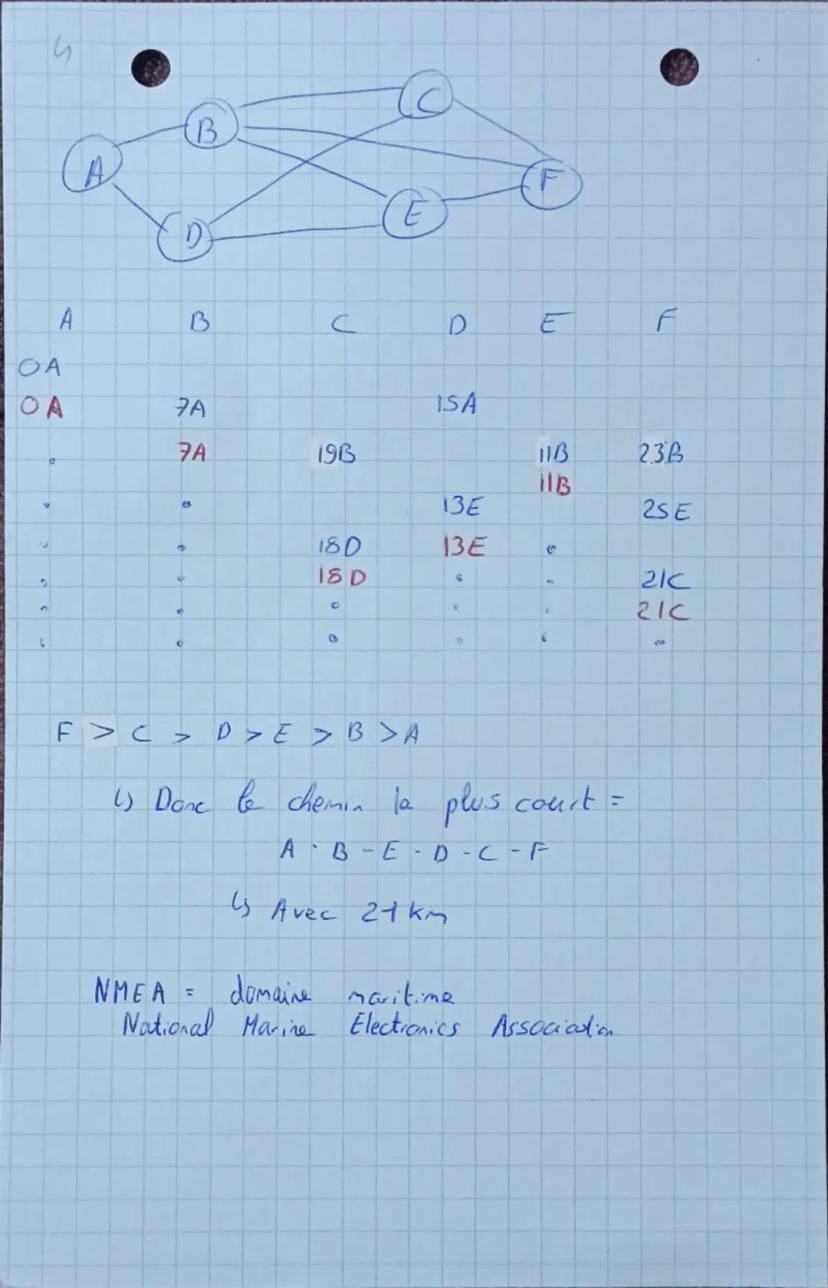 4
C
B
F
A
E
D
A B C D E F
0A
0A 7A 15A
7A 19B 11B 23B
11B
13E 25E
18D 13E
18D 21C
21C
F > C > D > E > B > A
↳ Donc le chemin la plus court =
A - B - E - D - C - F
↳ Avec 21 km
NMEA = domaine maritime
National Marine Electronics Association